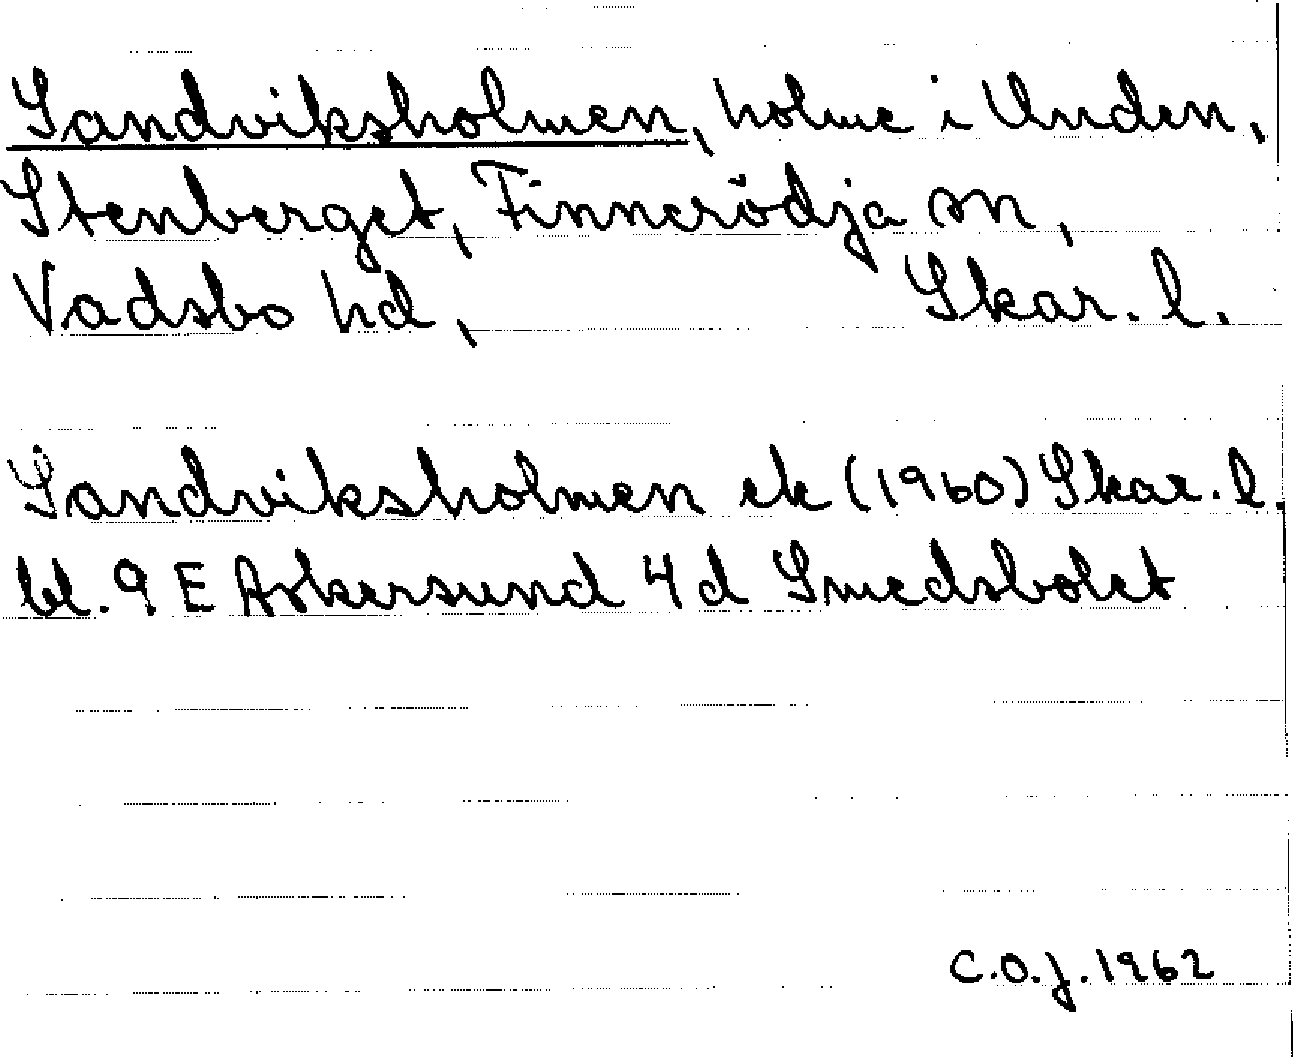 Sandviksholmen, holme i Unden,
Stenberget, Finnerödja sn,
Vadsbo hd, Skar. l.
Sandviksholmen ek (1960) Skar. l.
bl. 9 E Askersund 4 d Smedsbolet
C.O.J. 1962